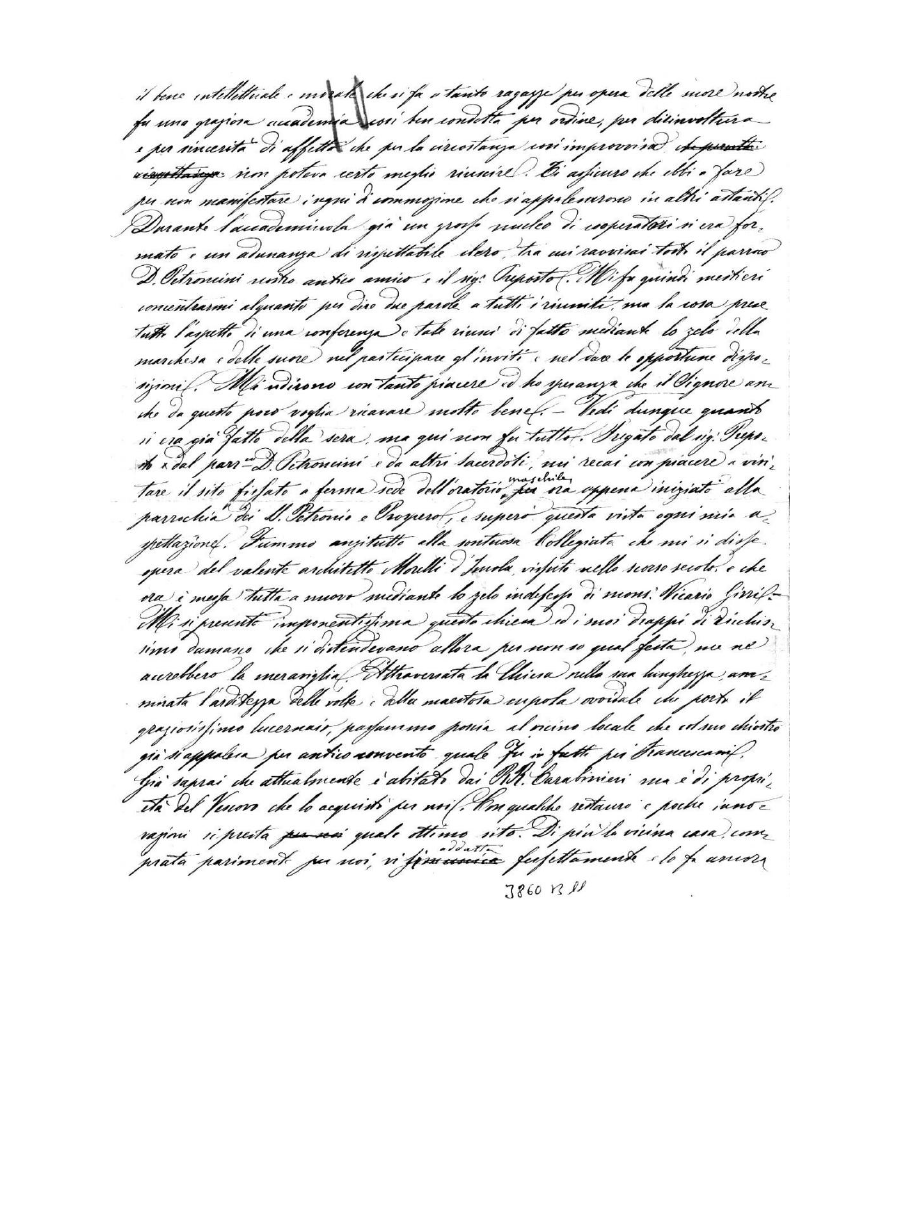 il bene intellettuale e morale che si fa a tante ragazze per opera delle suore nostre
fu una graziosa accademia così ben condotta per ordine, per disinvoltura
e per sincerità di affetto che per la circostanza così improvvisa,
non poteva certo meglio riuscire. Ti assicuro che ebbi a fare
per non manifestare i segni di commozione che si appalesarono in altri astanti.
Durante l'accademiola già un grosso nucleo di cooperatori si era for-
mato e un adunanza di rispettabile clero, tra cui ravvisai tosto il parroco
D. Petroncini nostro antico amico e il sig. Preposto. Mi fu quindi mestieri
concentrarmi alquanto per dire due parole a tutti i riuniti, ma la cosa prese
tutto l'aspetto di una conferenza e tale riuscì di fatto mediante lo zelo della
marchesa e delle suore nel participare gl'inviti e nel dare le opportune dispo-
sizioni. Mi udirono con tanto piacere ed ho speranza che il Signore an-
che da questo poco voglia ricavare molto bene. – Vedi dunque quanto
si era già fatto della sera, ma qui non fu tutto. Pregato dal sig. Prepo-
sto e dal parr.co D. Petroncini e da altri sacerdoti, mi recai con piacere a visi-
tare il sito fissato a ferma sede dell'oratorio maschile, per ora appena iniziato alla
parrochia dei S. Petronio e Prospero, e superò questa vista ogni mia a-
spettazione. Fummo anzitutto alla untuosa Collegiata che mi si disse
opera del valente architetto Morelli d'Imola, vissuto nello scorso secolo, e che
ora è messa tutta a nuovo mediante lo zelo indefesso di mons. Vicario
Mi si presentò imponentissima questa chiesa ed i suoi drappi di ricchis-
simo damasco che si distendevano allora per non so qual festa, me ne
accrebbero la meraviglia. Attraversata la Chiesa nella sua lunghezza, am-
mirata l'arditezza delle volte e della maestosa cupola ovoidale che porta il
graziosissimo lucernaio, passammo poscia al vicino locale che col suo chiostro
già si appalesa per antico convento quale fu in fatti pei Francescani.
Già saprai che attualmente è abitato dai RR. Carabinieri ma è di propri-
età del Vescovo che lo acquistò per noi. Con qualche restauro e poche inno-
vazioni si presta per noi quale ottimo sito. Di più la vicina casa com-
prata parimenti per noi, vi si adatta perfettamente e lo fa ancora
J860 B11